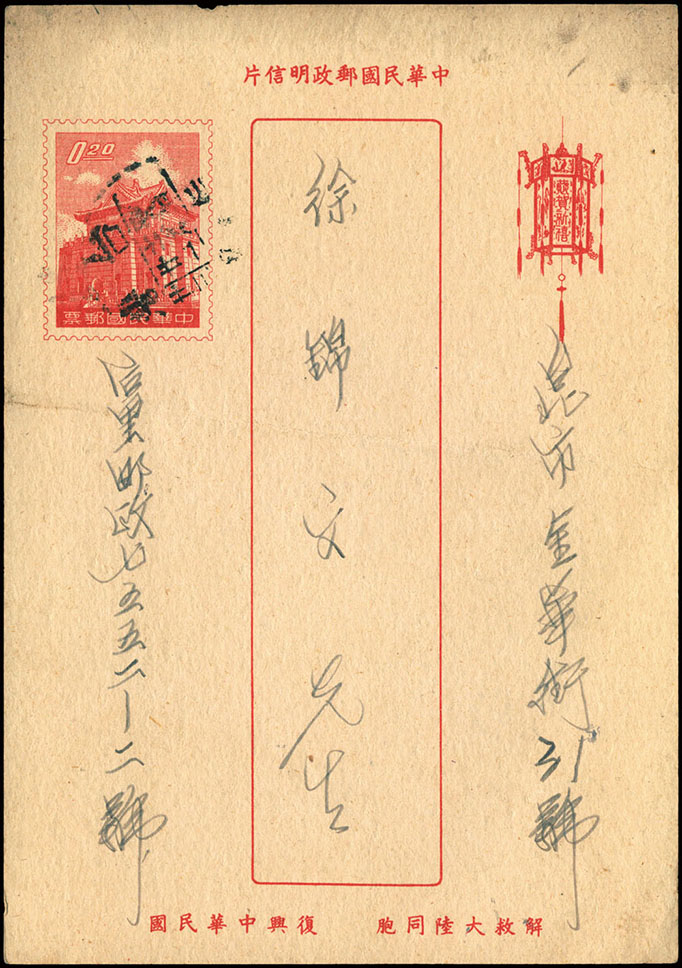 中華民國郵政明信片
0.20
中華民國郵票
賀新禧
台北市金華街31號
徐錦文先生
后里邮政七五五二-二號
解救大陸同胞 復興中華民國